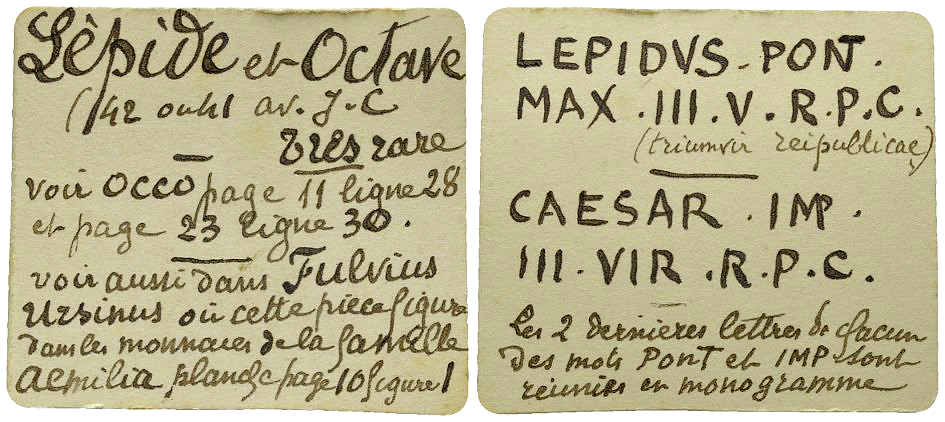 Lèpide et Octave
(42 ou 41 av. J-C
très rare
voir OCCO page 11 ligne 28
et page 23 ligne 30.
voir aussi dans Fulvius
Ursinus où cette pièce figure
dans les monnaies de la famille
Aemilia planche page 10 figure 1
LEPIDVS - PONT.
MAX . III . V . R . P . C .
(triumvir reipublicae)
CAESAR . IMP .
III . VIR . R . P . C .
Les 2 dernières lettres de chacun
des mots PONT et IMP sont
réunies en monogramme